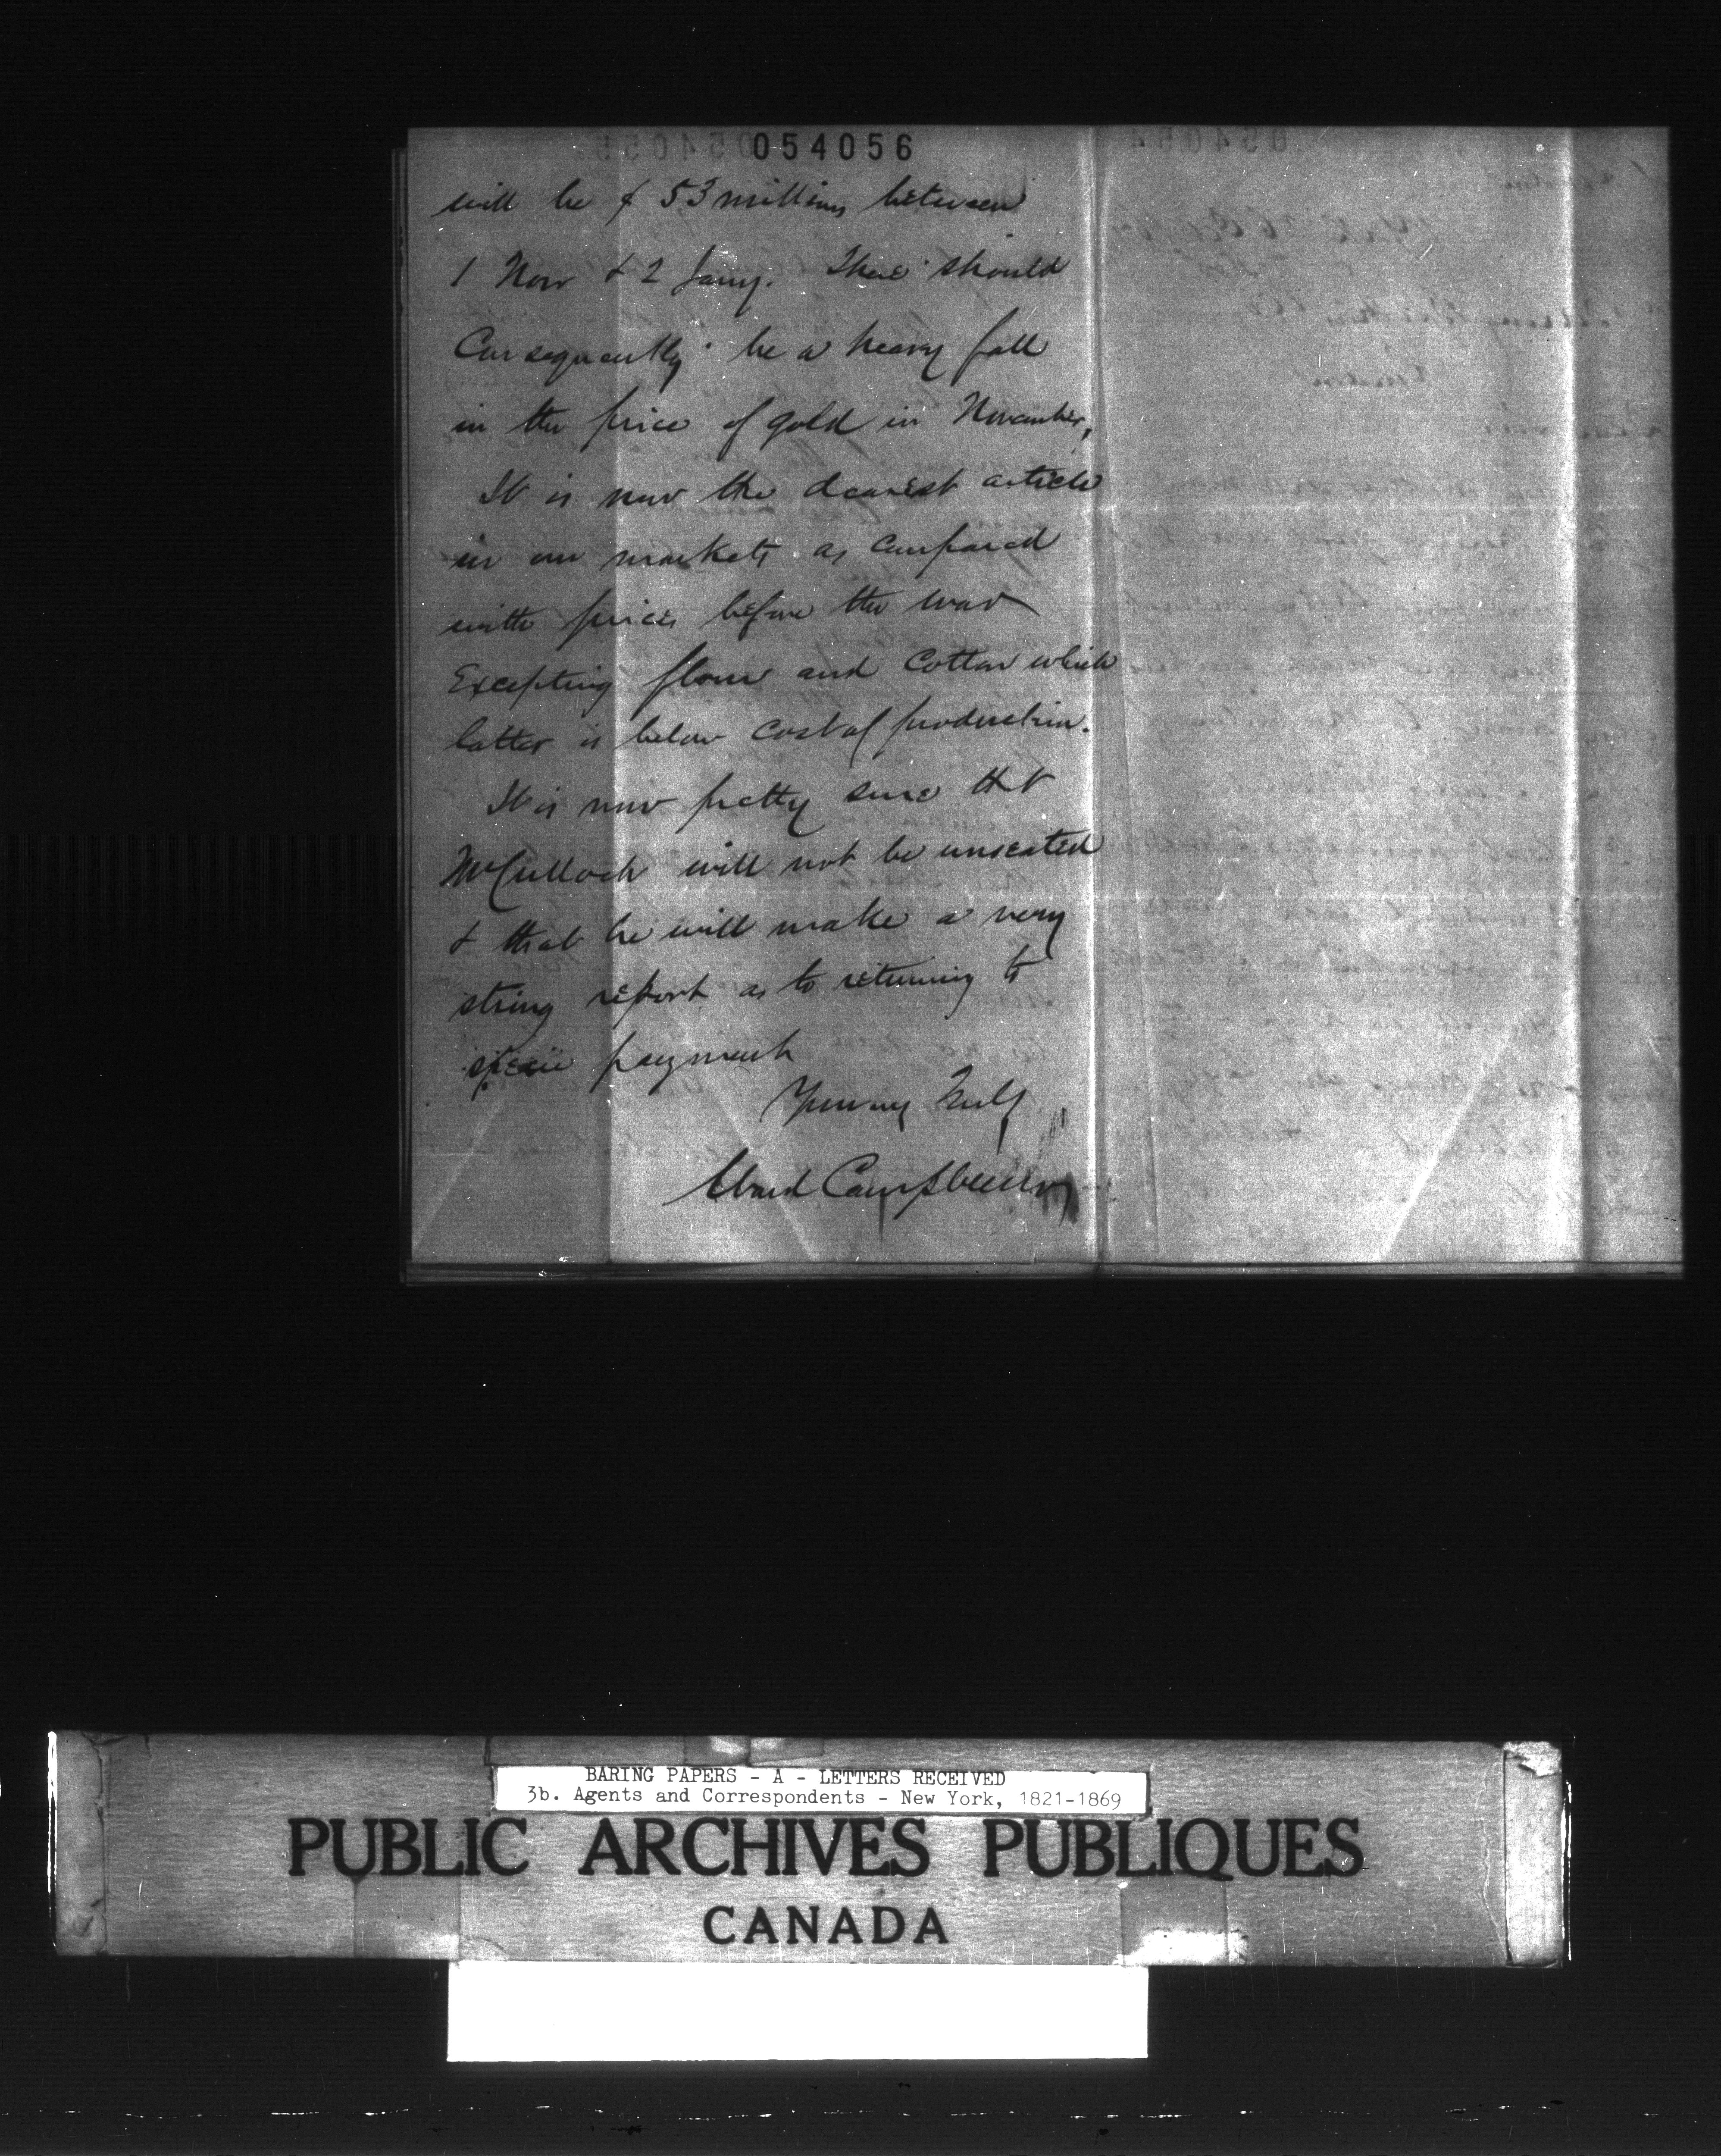 054056
will be $ 53 millions between
1 Nov & 2 Jany. There should
Consequently be a heavy fall
in the price of gold in November,
It is now the dearest article
in our markets as compared
with prices before the war
Excepting flour and Cotton which
latter is below cost of production.
It is now pretty sure tht
McCulloch will not be unseated
& that he will make a very
strong report as to returning to
specie payment
Yours very Truly
Campbell
BARING PAPERS - A - LETTERS RECEIVED
3b. Agents and Correspondents - New York, 1821-1869
PUBLIC ARCHIVES PUBLIQUES
CANADA